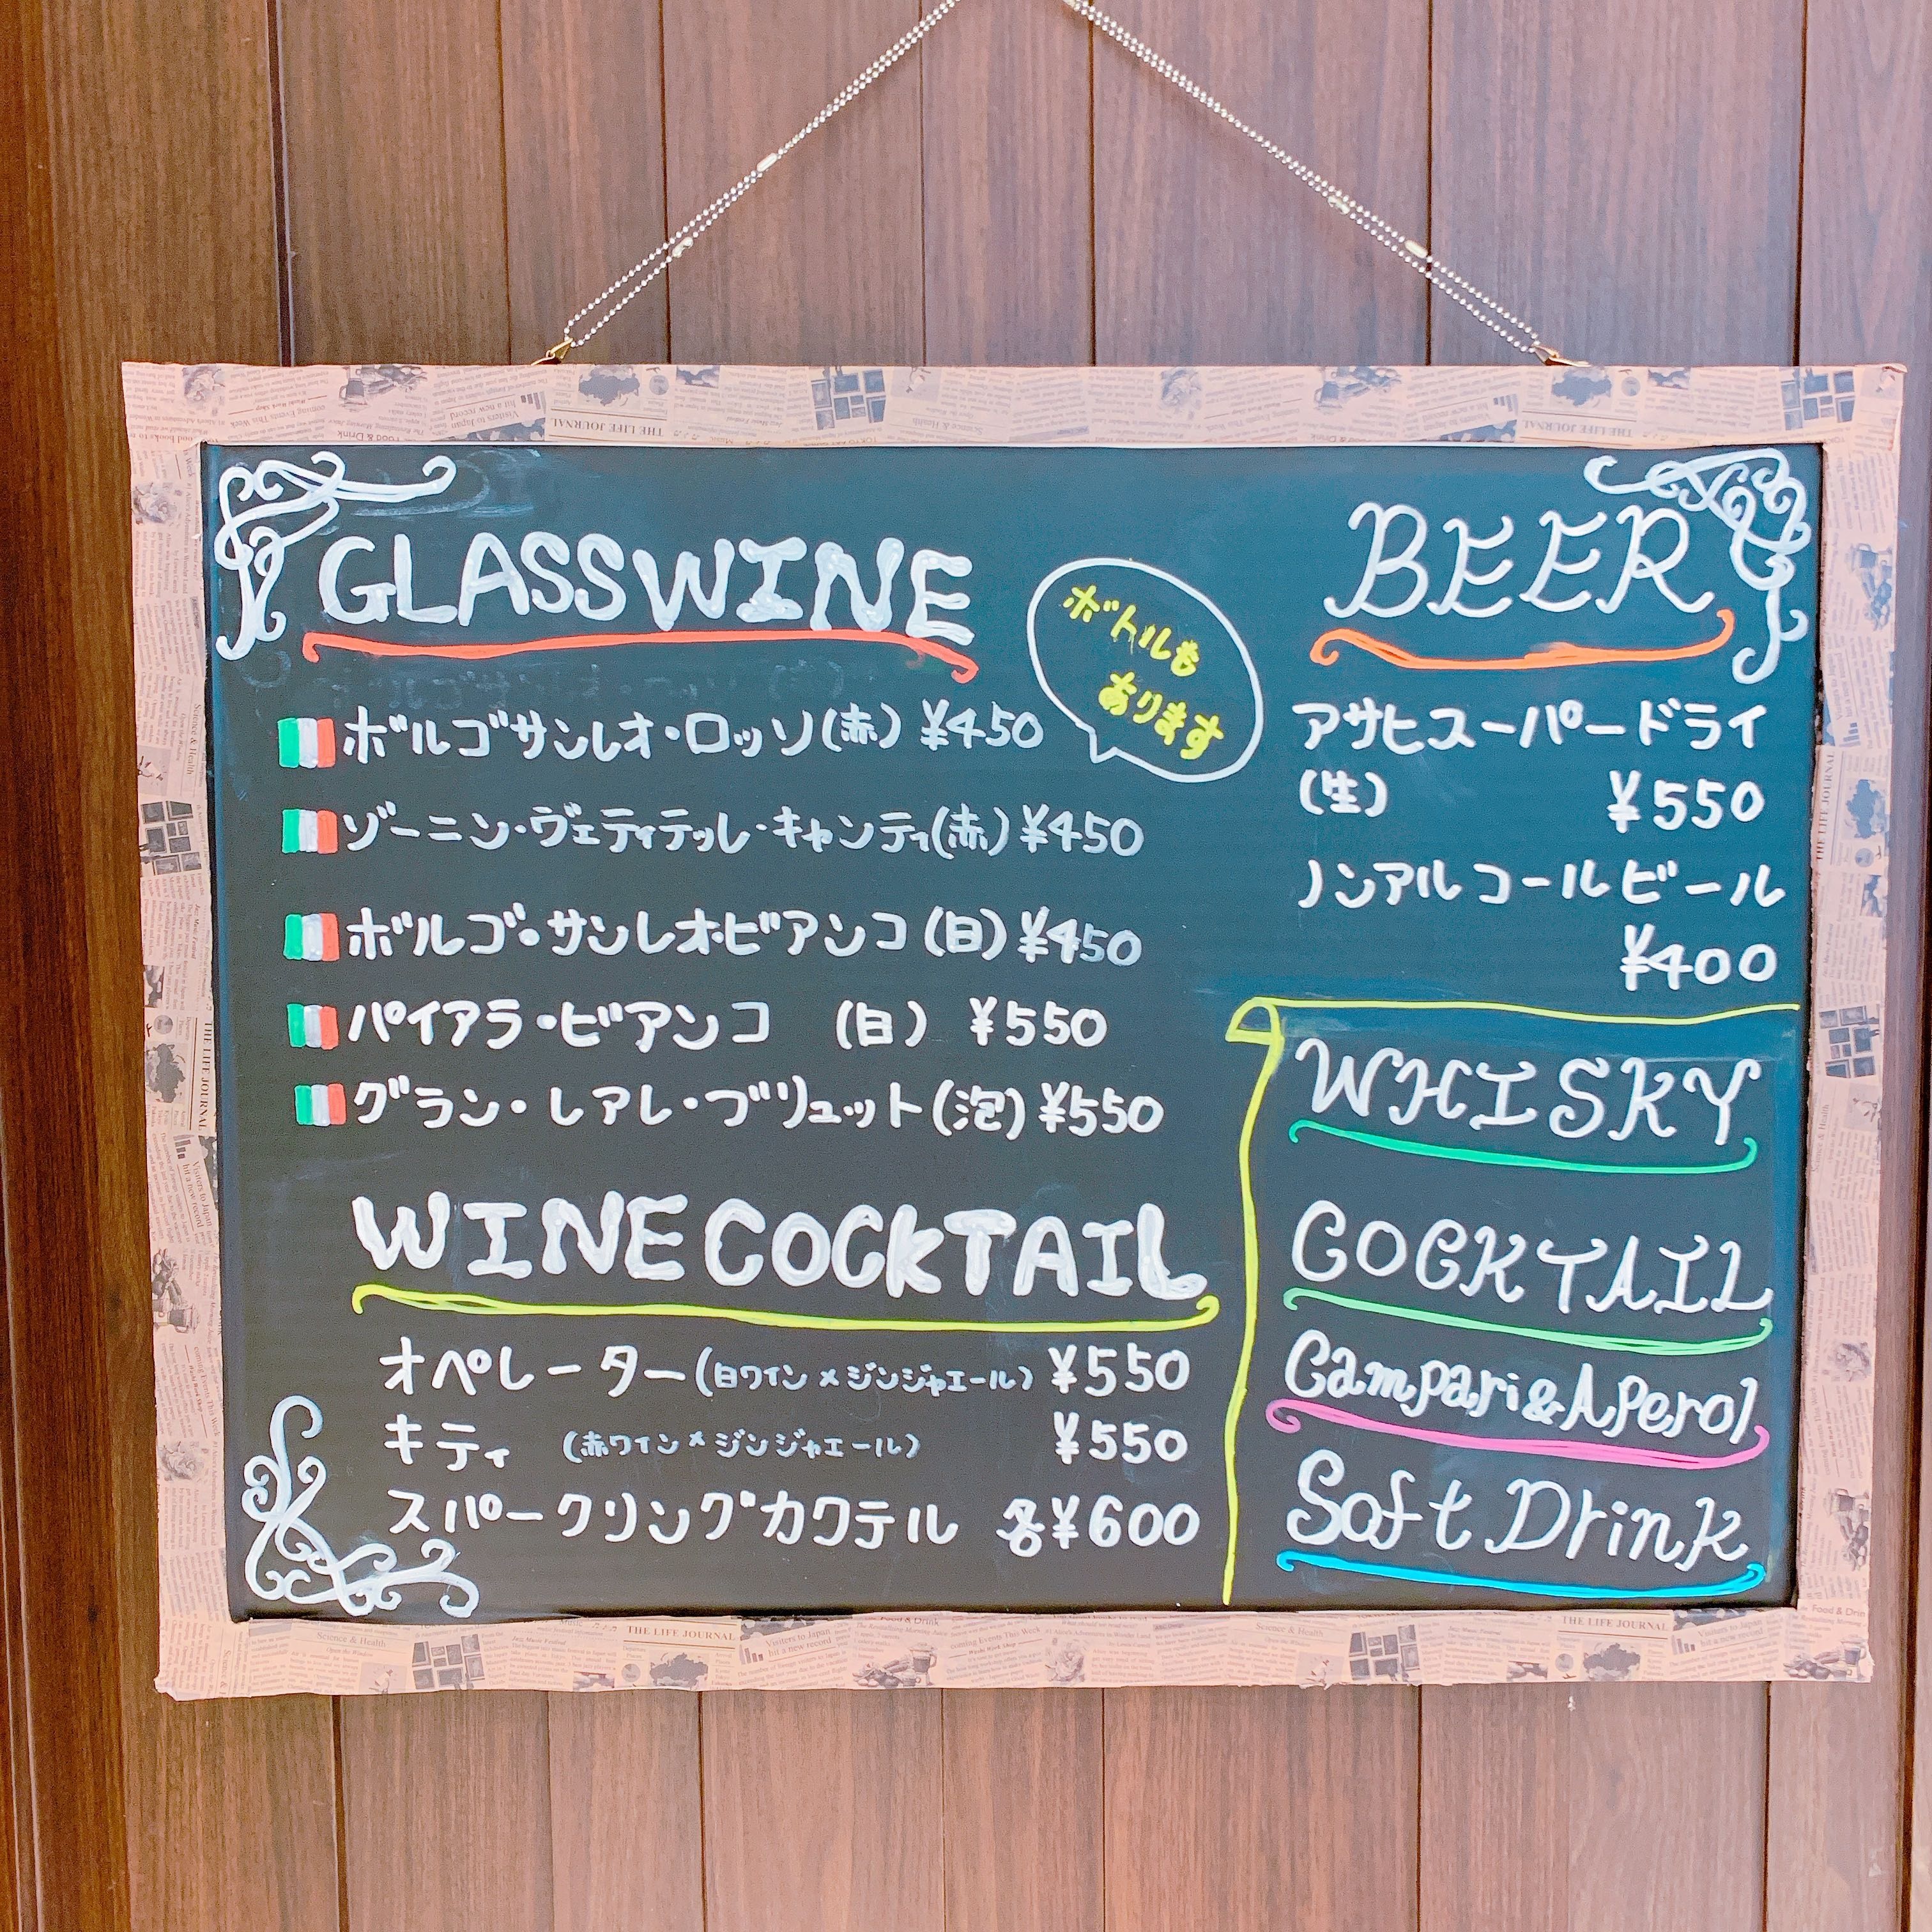 GLASSWINE
ボトルも
あります
ボルゴサンレオ・ロッソ(赤) ¥450
ゾーニン・ヴェティテッレ・キャンティ(赤) ¥450
ボルゴ・サンレオ・ビアンコ (白) ¥450
パイアラ・ビアンコ (白) ¥550
グラン・レアレ・ブリュット(泡) ¥550
WINE COCKTAIL
オペレーター(白ワイン×ジンジャエール) ¥550
キティ (赤ワイン×ジンジャエール) ¥550
スパークリングカクテル 各¥600
BEER
アサヒスーパードライ
(生) ¥550
ノンアルコールビール
¥400
WHISKY
COCKTAIL
Campari&Aperol
Soft Drink
THE LIFE JOURNAL
Science & Health
THE LIFE JOURNAL
Visitors to Japan
hit a new record
Science & Health
THE LIFE JOURNAL